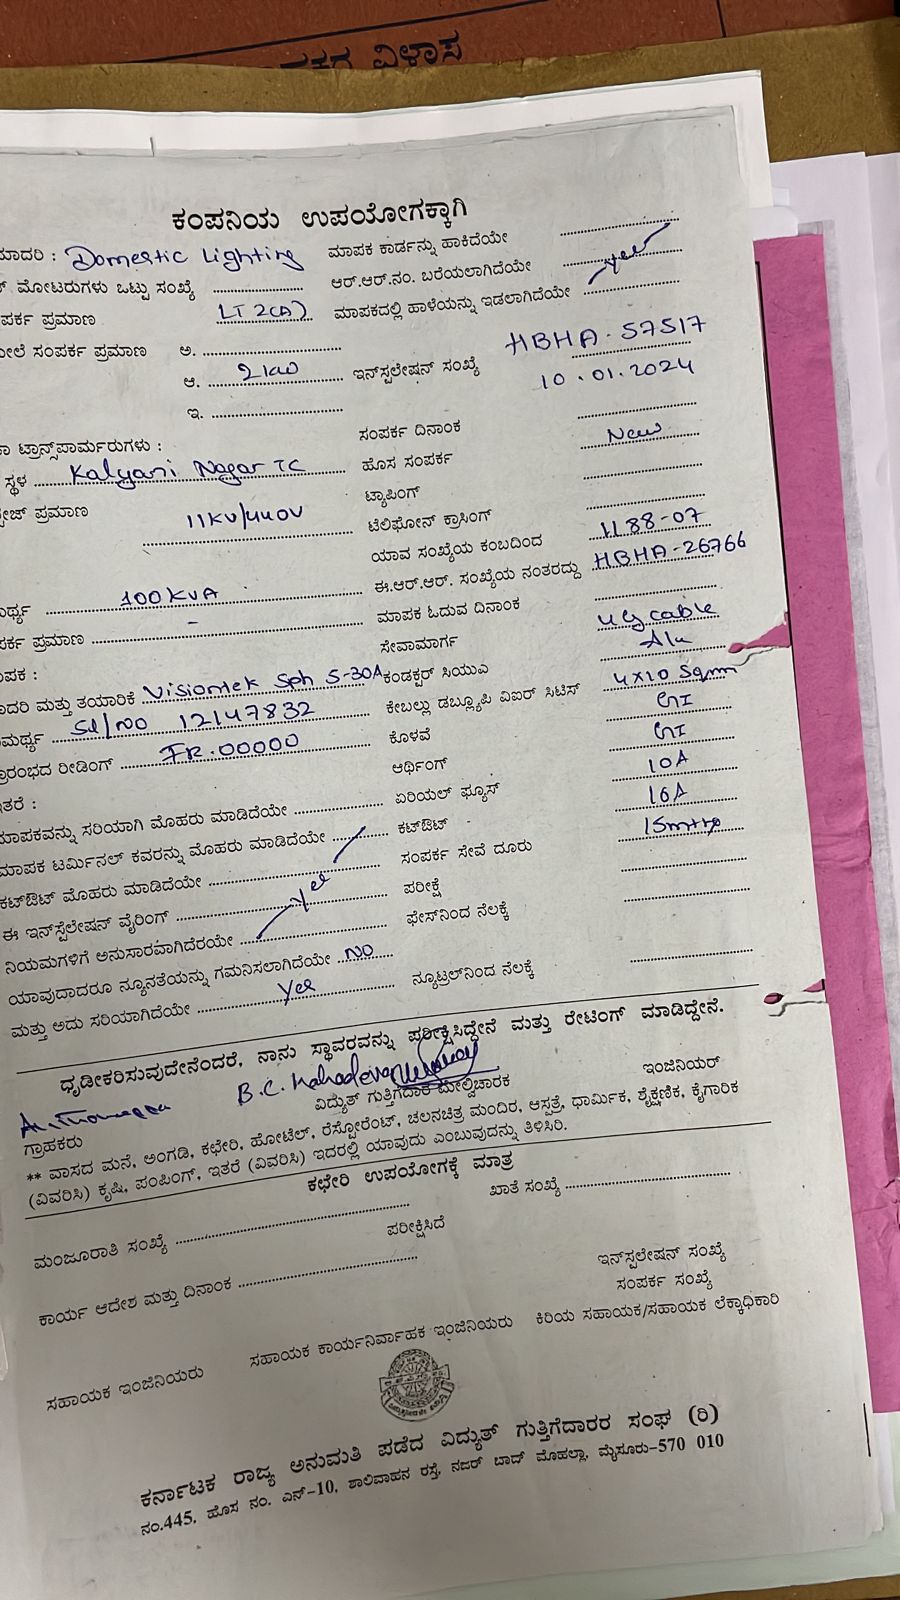 ವಿಳಾಸ
ಕಂಪನಿಯ ಉಪಯೋಗಕ್ಕಾಗಿ
ಮಾದರಿ : Domestic Lighting ಮಾಪಕ ಕಾರ್ಡನ್ನು ಹಾಕಿದೆಯೇ
ಮೋಟರುಗಳು ಒಟ್ಟು ಸಂಖ್ಯೆ ಆರ್.ಆರ್.ನಂ. ಬರೆಯಲಾಗಿದೆಯೇ yes
ಪರ್ಕ ಪ್ರಮಾಣ LT 2(A) ಮಾಪಕದಲ್ಲಿ ಹಾಳೆಯನ್ನು ಇಡಲಾಗಿದೆಯೇ
ಮೇಲೆ ಸಂಪರ್ಕ ಪ್ರಮಾಣ ಅ.
ಆ. 21kw ಇನ್‌ಸ್ಟಲೇಷನ್ ಸಂಖ್ಯೆ HBHA-57517
10.01.2024
ಇ.
ಸಂಪರ್ಕ ದಿನಾಂಕ
ಟ್ರಾನ್ಸ್‌ಪಾರ್ಮರುಗಳು :
ಸ್ಥಳ Kalyani Nagar TC ಹೊಸ ಸಂಪರ್ಕ New
ಟ್ಯಾಪಿಂಗ್
ಪ್ರಮಾಣ 11KV/440V ಟೆಲಿಫೋನ್ ಕ್ರಾಸಿಂಗ್
ಯಾವ ಸಂಖ್ಯೆಯ ಕಂಬದಿಂದ 1188-07
100KVA ಈ.ಆರ್.ಆರ್. ಸಂಖ್ಯೆಯ ನಂತರದ್ದು HBHA-26766
ಪರ್ಕ ಪ್ರಮಾಣ - ಮಾಪಕ ಓದುವ ದಿನಾಂಕ
ಸೇವಾಮಾರ್ಗ UG cable
ಪಕ :
ಮತ್ತು ತಯಾರಿಕೆ Visiontek Sph 5-30A ಕಂಡಕ್ಟರ್ ಸಿಯುವಿ Alu
Sl/No 12147832 ಕೇಬಲ್ಲು ಡಬ್ಲ್ಯೂಪಿ ವಿಐರ್ ಸಿಟಿಸ್ 4x10 Sqmm
ರೀಡಿಂಗ್ IR.00000 ಕೊಳವೆ GI
ಆರ್ಥಿಂಗ್ GI
ಇತರೆ :
ಮಾಪಕವನ್ನು ಸರಿಯಾಗಿ ಮೊಹರು ಮಾಡಿದೆಯೇ ಏರಿಯಲ್ ಫ್ಯೂಸ್ 10A
ಮಾಪಕ ಟರ್ಮಿನಲ್ ಕವರನ್ನು ಮೊಹರು ಮಾಡಿದೆಯೇ ಕಟ್‌ಔಟ್ 16A
ಕಟ್‌ಔಟ್ ಮೊಹರು ಮಾಡಿದೆಯೇ yes ಸಂಪರ್ಕ ಸೇವೆ ದೂರು 15mtrs
ಈ ಇನ್‌ಸ್ಟೆಲೇಷನ್ ವೈರಿಂಗ್ ಪರೀಕ್ಷೆ
ನಿಯಮಗಳಿಗೆ ಅನುಸಾರವಾಗಿದೆರಯೇ ಫೇಸ್‌ನಿಂದ ನೆಲಕ್ಕೆ
ಯಾವುದಾದರೂ ನ್ಯೂನತೆಯನ್ನು ಗಮನಿಸಲಾಗಿದೆಯೇ NO
ಮತ್ತು ಅದು ಸರಿಯಾಗಿದೆಯೇ Yes ನ್ಯೂಟ್ರಲ್‌ನಿಂದ ನೆಲಕ್ಕೆ
ಧೃಡೀಕರಿಸುವುದೇನೆಂದರೆ, ನಾನು ಸ್ಥಾವರವನ್ನು ಪರೀಕ್ಷಿಸಿದ್ದೇನೆ ಮತ್ತು ರೇಟಿಂಗ್ ಮಾಡಿದ್ದೇನೆ.
B.C. Mahadeva
ಗ್ರಾಹಕರು ವಿದ್ಯುತ್ ಗುತ್ತಿಗೆದಾರ ಮೇಲ್ವಿಚಾರಕ ಇಂಜಿನಿಯರ್
** ವಾಸದ ಮನೆ, ಅಂಗಡಿ, ಕಛೇರಿ, ಹೋಟೆಲ್, ರೆಸ್ಟೋರೆಂಟ್, ಚಲನಚಿತ್ರ ಮಂದಿರ, ಆಸ್ಪತ್ರೆ, ಧಾರ್ಮಿಕ, ಶೈಕ್ಷಣಿಕ, ಕೈಗಾರಿಕ
(ವಿವರಿಸಿ) ಕೃಷಿ, ಪಂಪಿಂಗ್, ಇತರೆ (ವಿವರಿಸಿ) ಇದರಲ್ಲಿ ಯಾವುದು ಎಂಬುವುದನ್ನು ತಿಳಿಸಿರಿ.
ಕಛೇರಿ ಉಪಯೋಗಕ್ಕೆ ಮಾತ್ರ
ಮಂಜೂರಾತಿ ಸಂಖ್ಯೆ ಖಾತೆ ಸಂಖ್ಯೆ
ಪರೀಕ್ಷಿಸಿದೆ
ಕಾರ್ಯ ಆದೇಶ ಮತ್ತು ದಿನಾಂಕ ಇನ್‌ಸ್ಟಲೇಷನ್ ಸಂಖ್ಯೆ
ಸಂಪರ್ಕ ಸಂಖ್ಯೆ
ಸಹಾಯಕ ಇಂಜಿನಿಯರು ಸಹಾಯಕ ಕಾರ್ಯನಿರ್ವಾಹಕ ಇಂಜಿನಿಯರು ಕಿರಿಯ ಸಹಾಯಕ/ಸಹಾಯಕ ಲೆಕ್ಕಾಧಿಕಾರಿ
ಕರ್ನಾಟಕ ರಾಜ್ಯ ಅನುಮತಿ ಪಡೆದ ವಿದ್ಯುತ್ ಗುತ್ತಿಗೆದಾರರ ಸಂಘ (ರಿ)
ನಂ.445, ಹೊಸ ನಂ. ಎನ್-10, ಶಾಲಿವಾಹನ ರಸ್ತೆ, ನಜರ್ ಬಾದ್ ಮೊಹಲ್ಲಾ, ಮೈಸೂರು-570 010